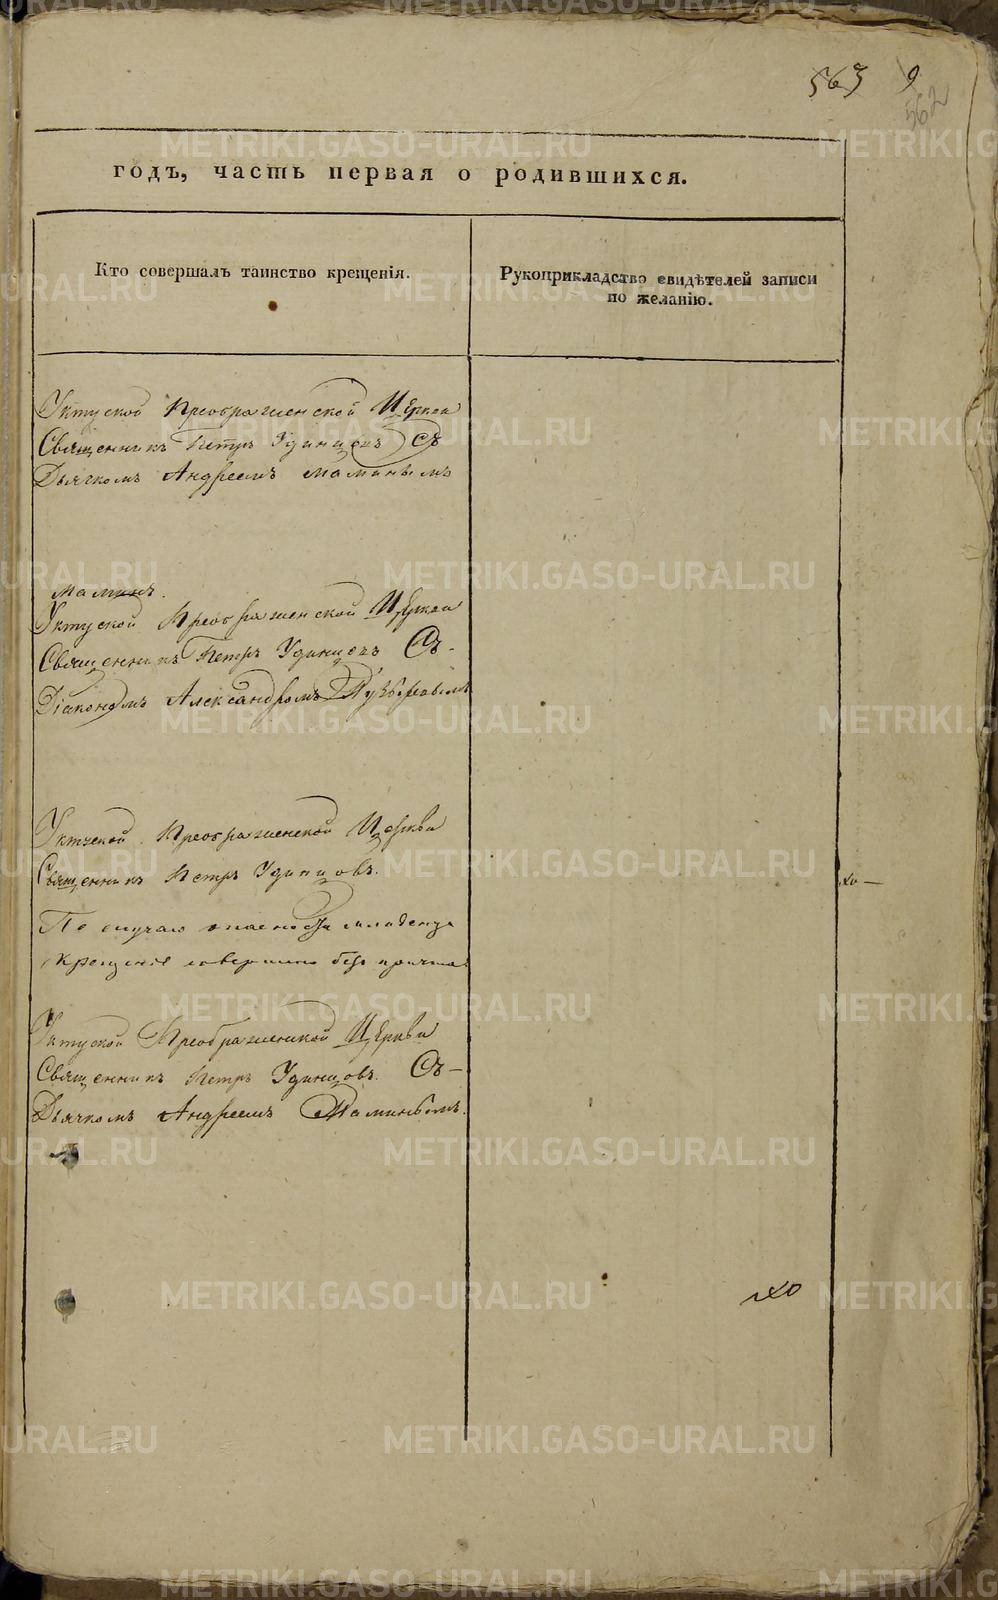 563 9
562
годъ, часть первая о родившихся.
Кто совершалъ таинство крещенія.
Рукоприкладство свидѣтелей записи
по желанію.
Уктуской Преображенской Церкви
Священникъ Петръ Удинцовъ Съ
Дьячкомъ Андреемъ Маминымъ
Маминъ.
Уктуской Преображенской Церкви
Священникъ Петръ Удинцовъ Съ-
Діакономъ Александромъ
Уктуской Преображенской Церкви
Священникъ Петръ Удинцовъ.
По случаю опасности младенца
крещеніе совершено безъ причта.
Уктуской Преображенской Церкви
Священникъ Петръ Удинцовъ. Съ-
Дьячкомъ Андреемъ Маминымъ.
METRIKI.GASO-URAL.RU